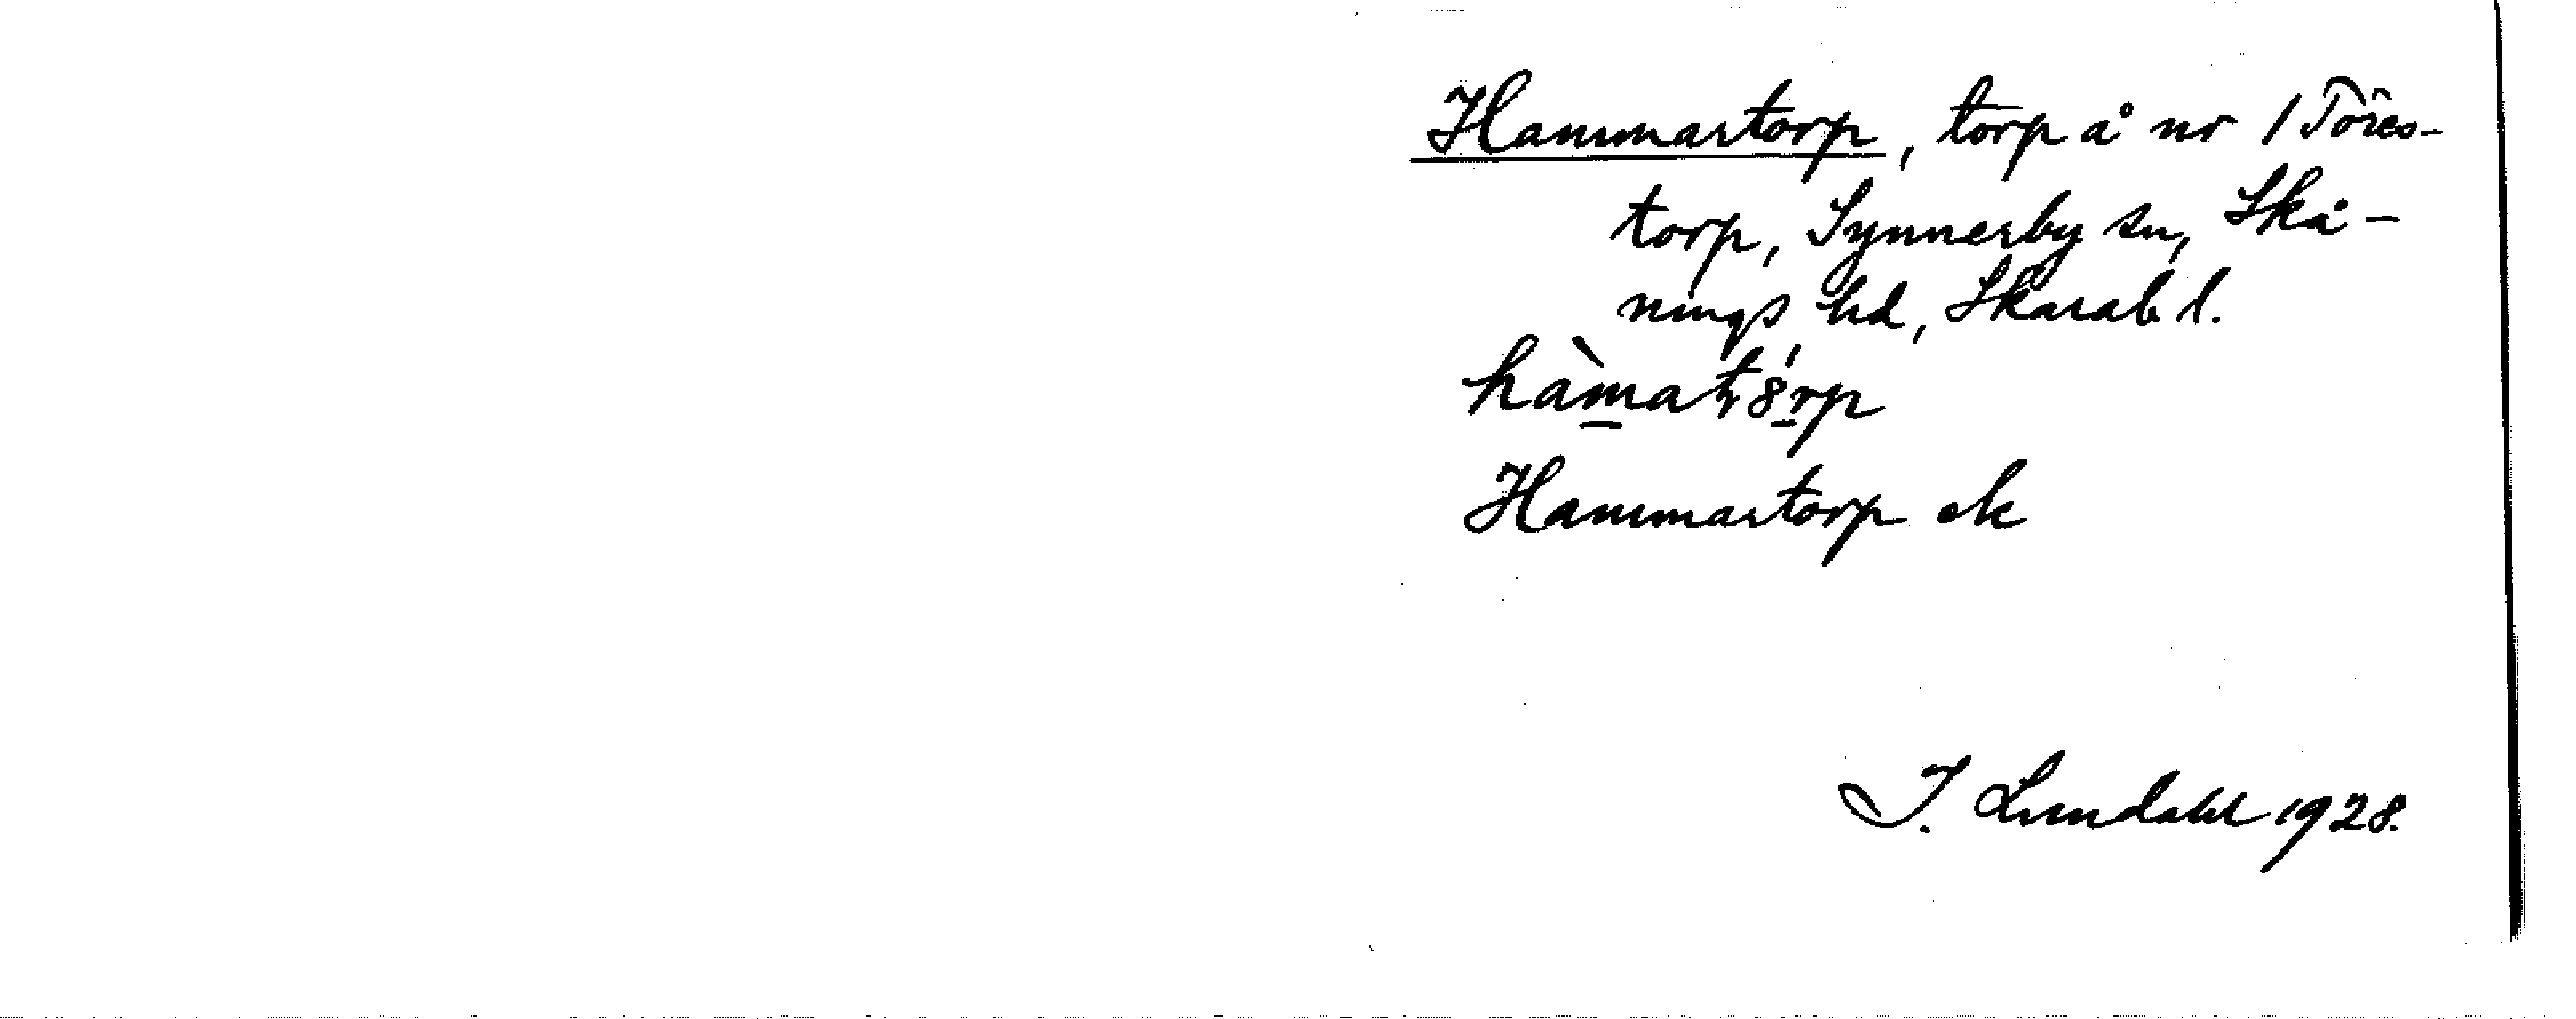 Hammartorp, torp å nr 1 Töres-
torp, Synnerby sn, Skå-
nings hd, Skarab l.
hàmatórp
Hammartorp ek
I. Lundahl 1928.